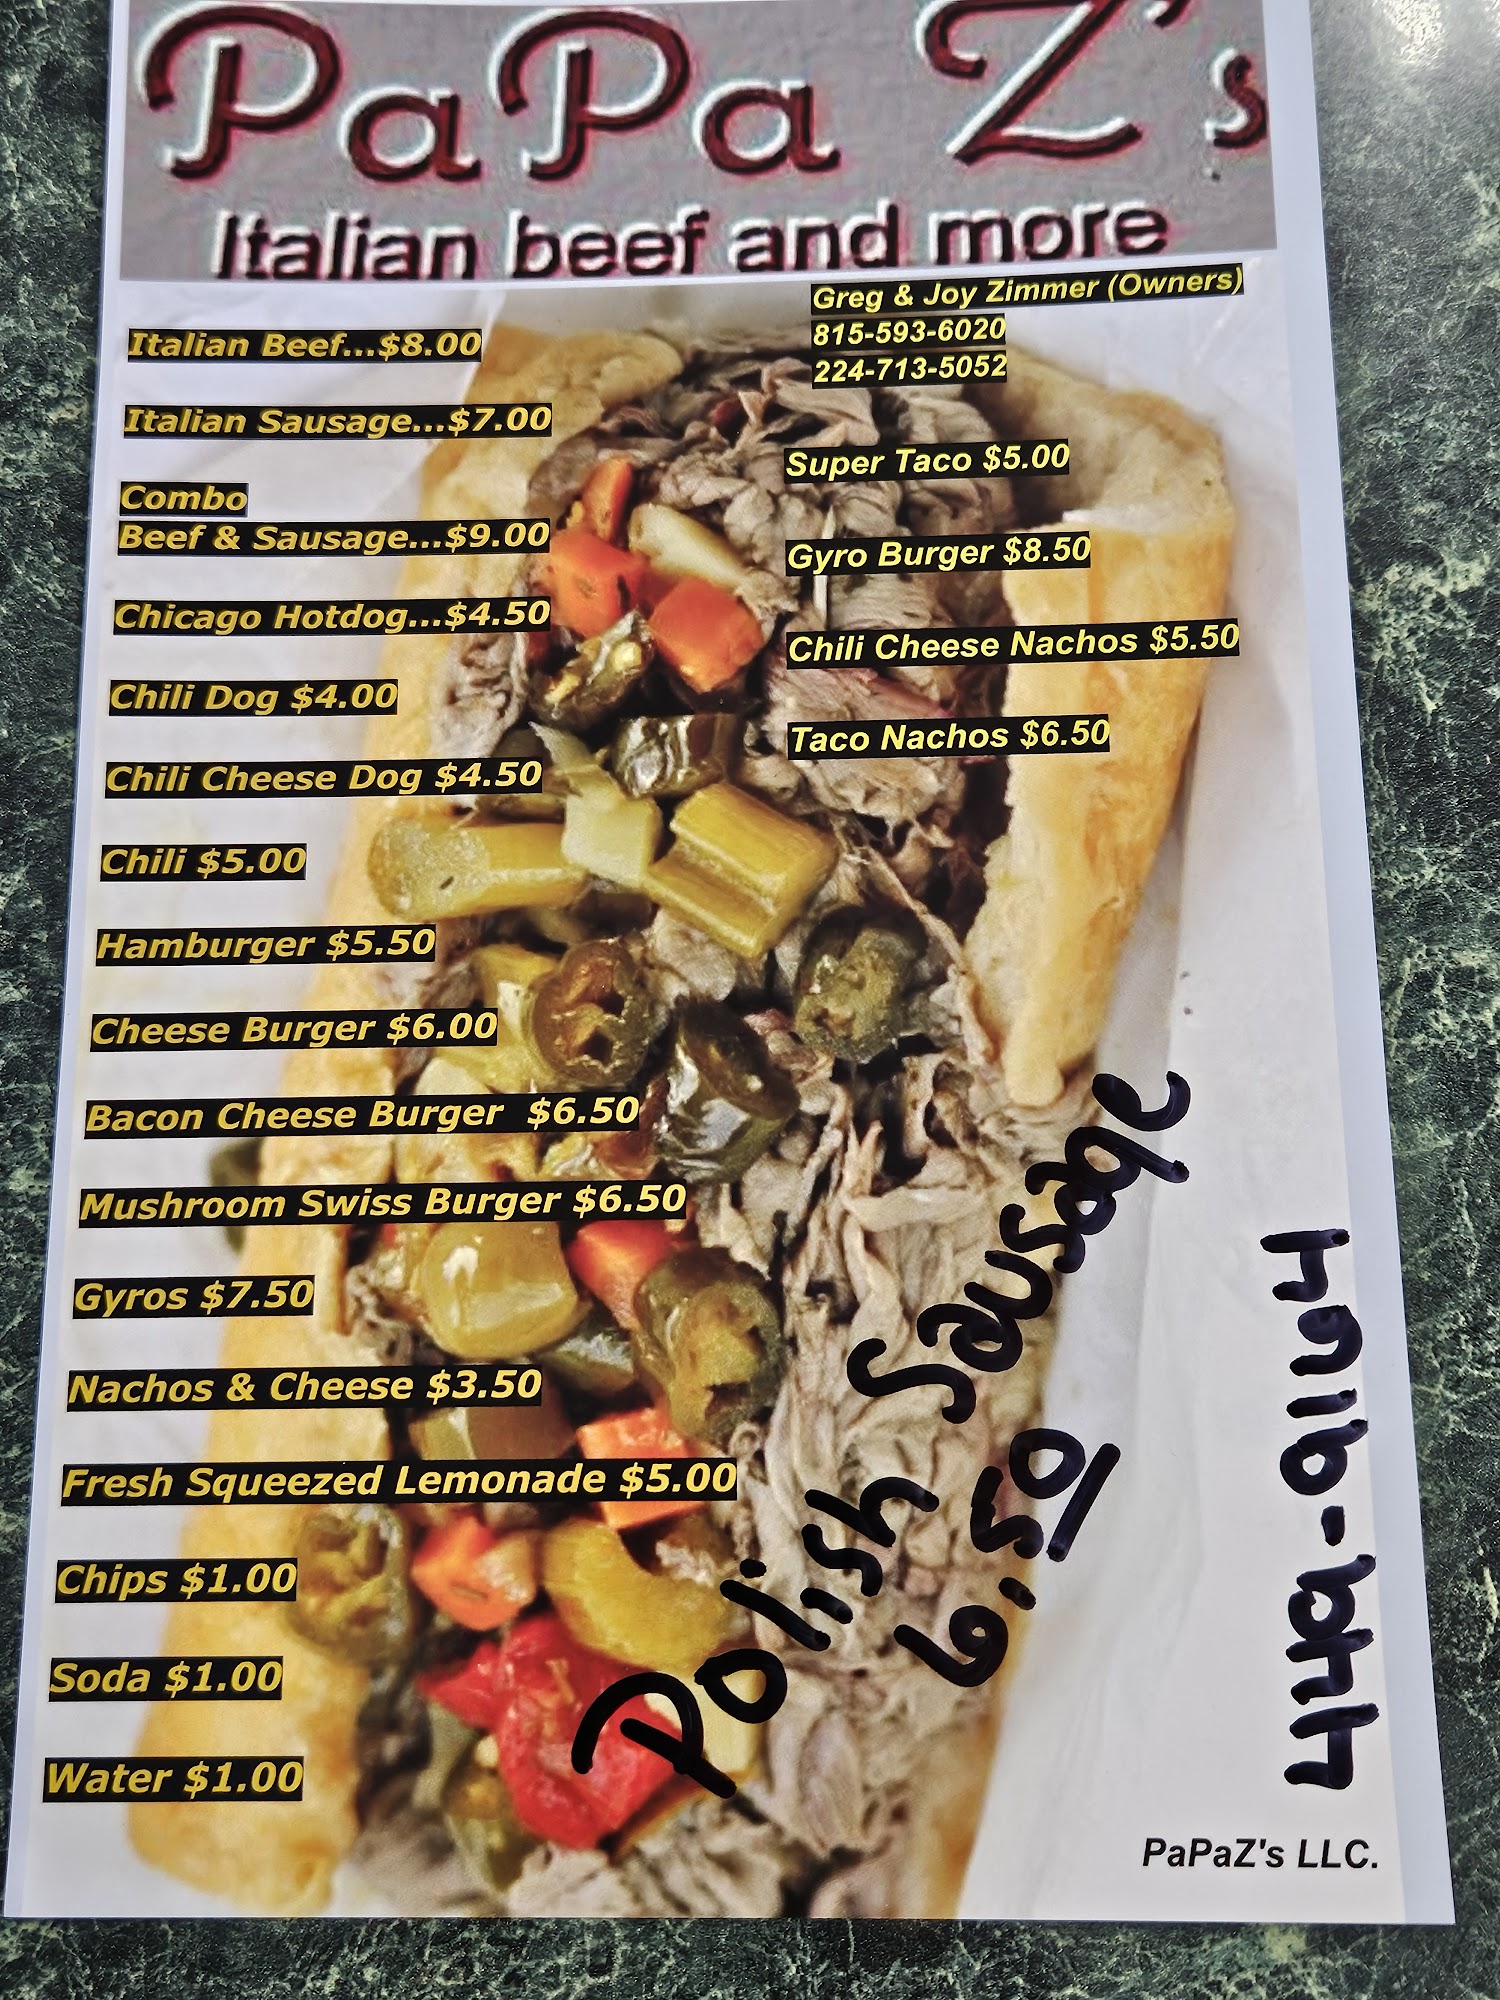 PaPa Z's
Italian beef and more
Greg & Joy Zimmer (Owners)
815-593-6020
224-713-5052
Italian Beef...$8.00
Italian Sausage...$7.00
Combo
Beef & Sausage...$9.00
Chicago Hotdog...$4.50
Chili Dog $4.00
Chili Cheese Dog $4.50
Chili $5.00
Hamburger $5.50
Cheese Burger $6.00
Bacon Cheese Burger $6.50
Mushroom Swiss Burger $6.50
Gyros $7.50
Nachos & Cheese $3.50
Fresh Squeezed Lemonade $5.00
Chips $1.00
Soda $1.00
Water $1.00
Super Taco $5.00
Gyro Burger $8.50
Chili Cheese Nachos $5.50
Taco Nachos $6.50
Polish Sausage
6.50
PaPaZ's LLC.